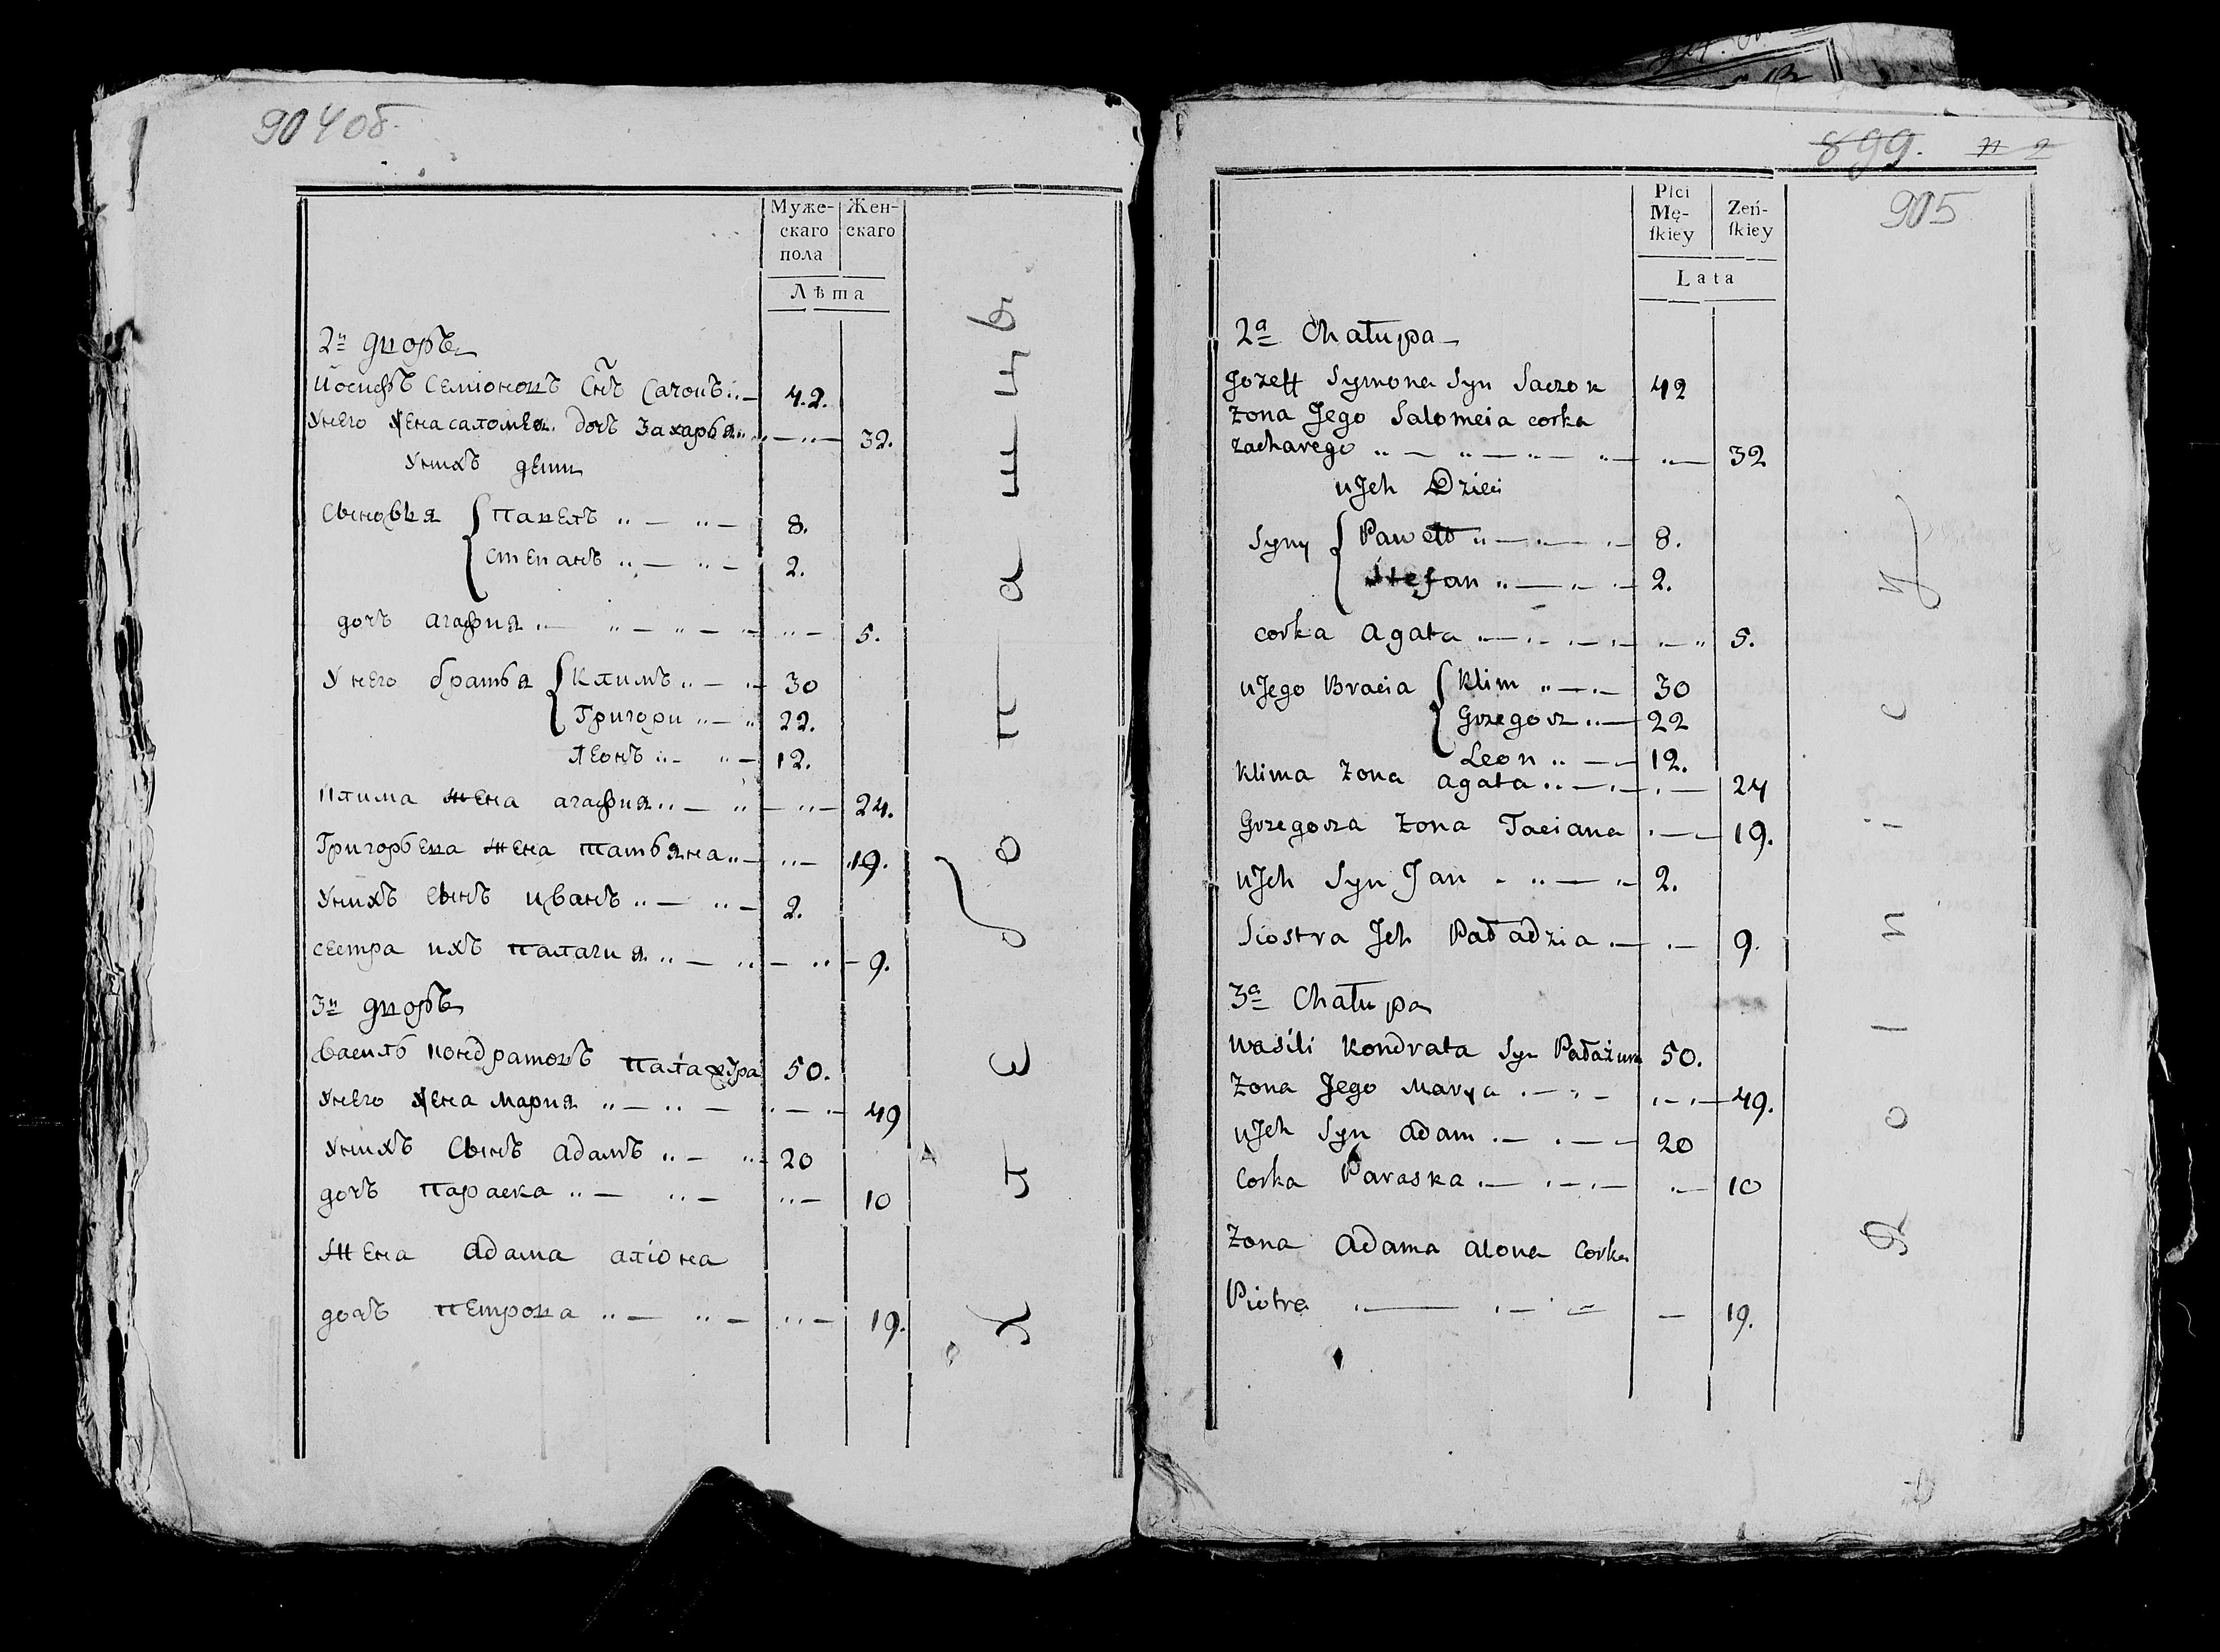 904 об.
Муже-
скаго
пола
Жен-
скаго
Лѣта
2й дворъ
Иосифъ Семионовъ Снъ Сачокъ 42.
Унего жена саломея. дочь Захарья 32.
Унихъ дети
Сыновья
павелъ 8.
степанъ 2.
дочь агафия 5.
Унего братья
Климъ 30
Григори 22.
леонъ 12.
Клима жена агафия 24.
Григорьева жена татьяна 19.
Унихъ сынъ иванъ 2.
сестра ихъ палагия 9.
3й дворъ
василь кондратовъ 50.
Унего жена мария 49
Унихъ сынъ адамъ 20
дочь параска 10
жена адама алиона
дочь петрова 19.
899.
905
Płci
Mę-
ſkiey
Żeń-
ſkiey
Lata
2a Chałupa
Jozeff Symona Syn Saczok 42
żona Jego Salomeia corka
zacharego 32
uJch Dzieci
Syny
Paweł 8.
Stefan 2.
corka agata 5.
uJego Bracia
Klim 30
Grzegorz 22
Leon 12.
Klima żona agata 24
Grzegorza żona Taciana 19.
uJch Syn Jan 2.
Siostra Jch Paładzia 9.
3a Chałupa
Wasili Kondrata Syn 50.
żona Jego Marya 49.
uJch Syn adam 20
Corka Paraska 10
żona adama alona Corka
Piotra 19.